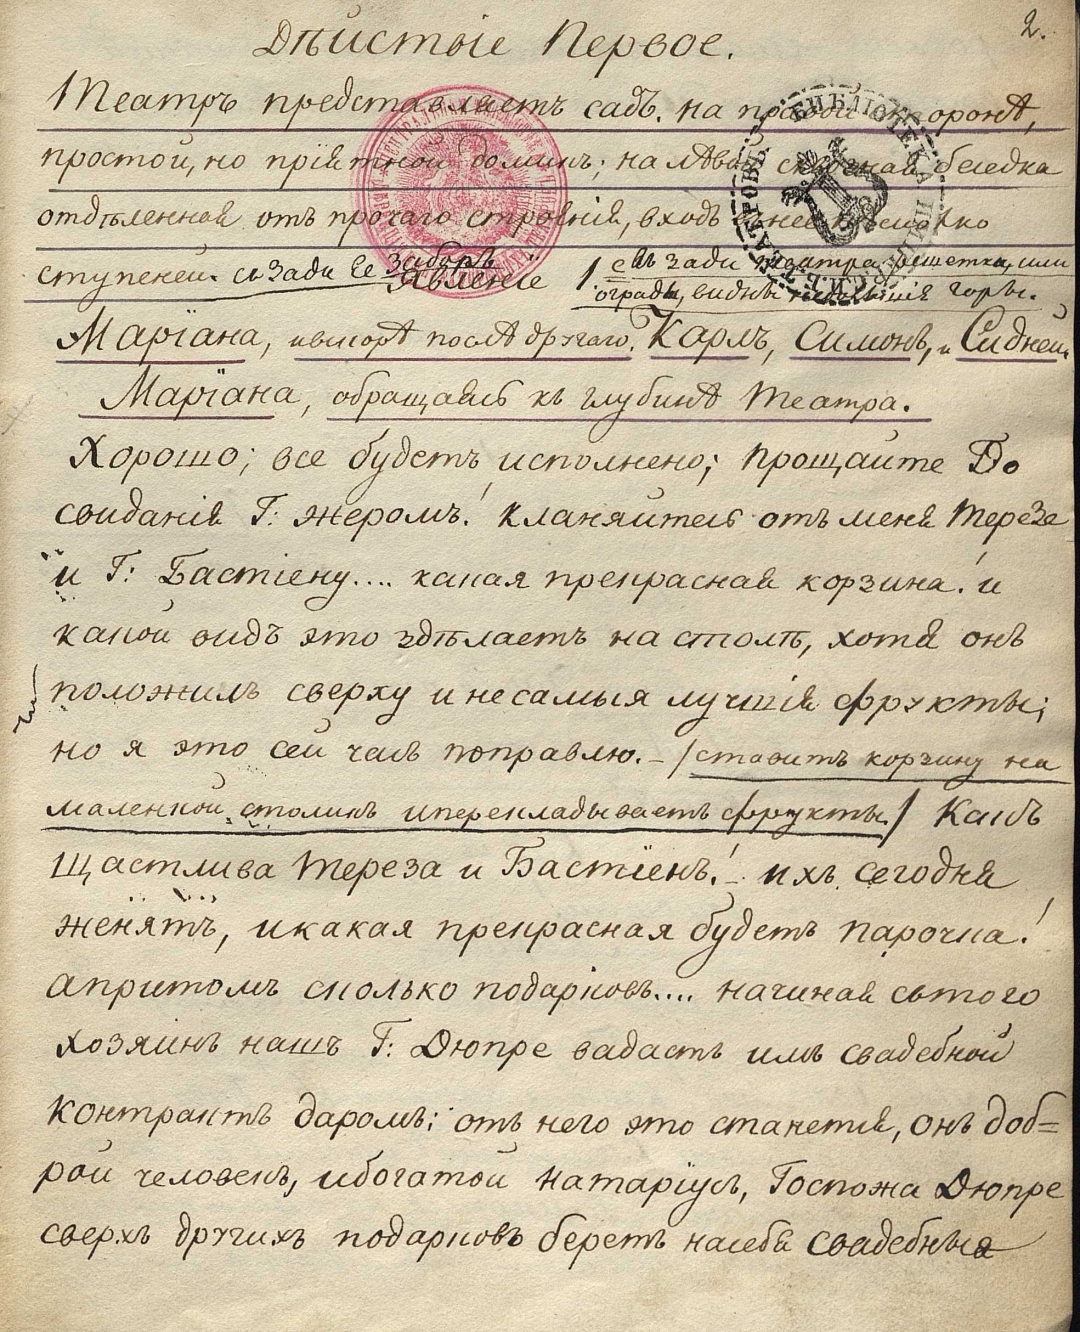 2.
Дѣйстіе Первое.
Театръ представляетъ садъ. на правой сторонѣ,
простой, но пріятной домикъ; на лѣвой беседка
отдѣленная отъ прочаго строѣнія, входъ
ступеней. съ зади ее заборъ
Явленіе 1е
въ зади театра решетка, или
ограда, виднѣ небольшія горы.
Маріана, и вскорѣ послѣ другаго, Карлъ, Симонъ, и Сидней.
Маріана, обращаясь къ глубинѣ Театра.
Хорошо; все будетъ исполнено; прощайте До
свиданія Г: Жеромъ! кланяйтесь отъ меня Терезе
и Г: Бастіену.... какая прекрасная корзина! и
какой видъ это здѣлаетъ на столѣ, хотя онъ
положилъ сверху и не самыя лучшія фрукты;
но я это сей часъ поправлю. – /ставитъ корзину на
маленкой столикъ и перекладываетъ фрукты./ Какъ
Щастлива Тереза и Бастіенъ! ихъ сегодня
женятъ, и какая прекрасная будетъ парочка!
а притомъ сколько подарковъ.... начиная съ того
хозяинъ нашъ Г: Дюпре задастъ имъ свадебной
контрактъ даромъ; отъ него это станется, онъ доб=
рой человекъ, и богатой натаріусъ, Госпожа Дюпре
сверхъ другихъ подарковъ беретъ на себя свадебныя
БИБЛІОТЕКА
ТЕАТРОВЪ